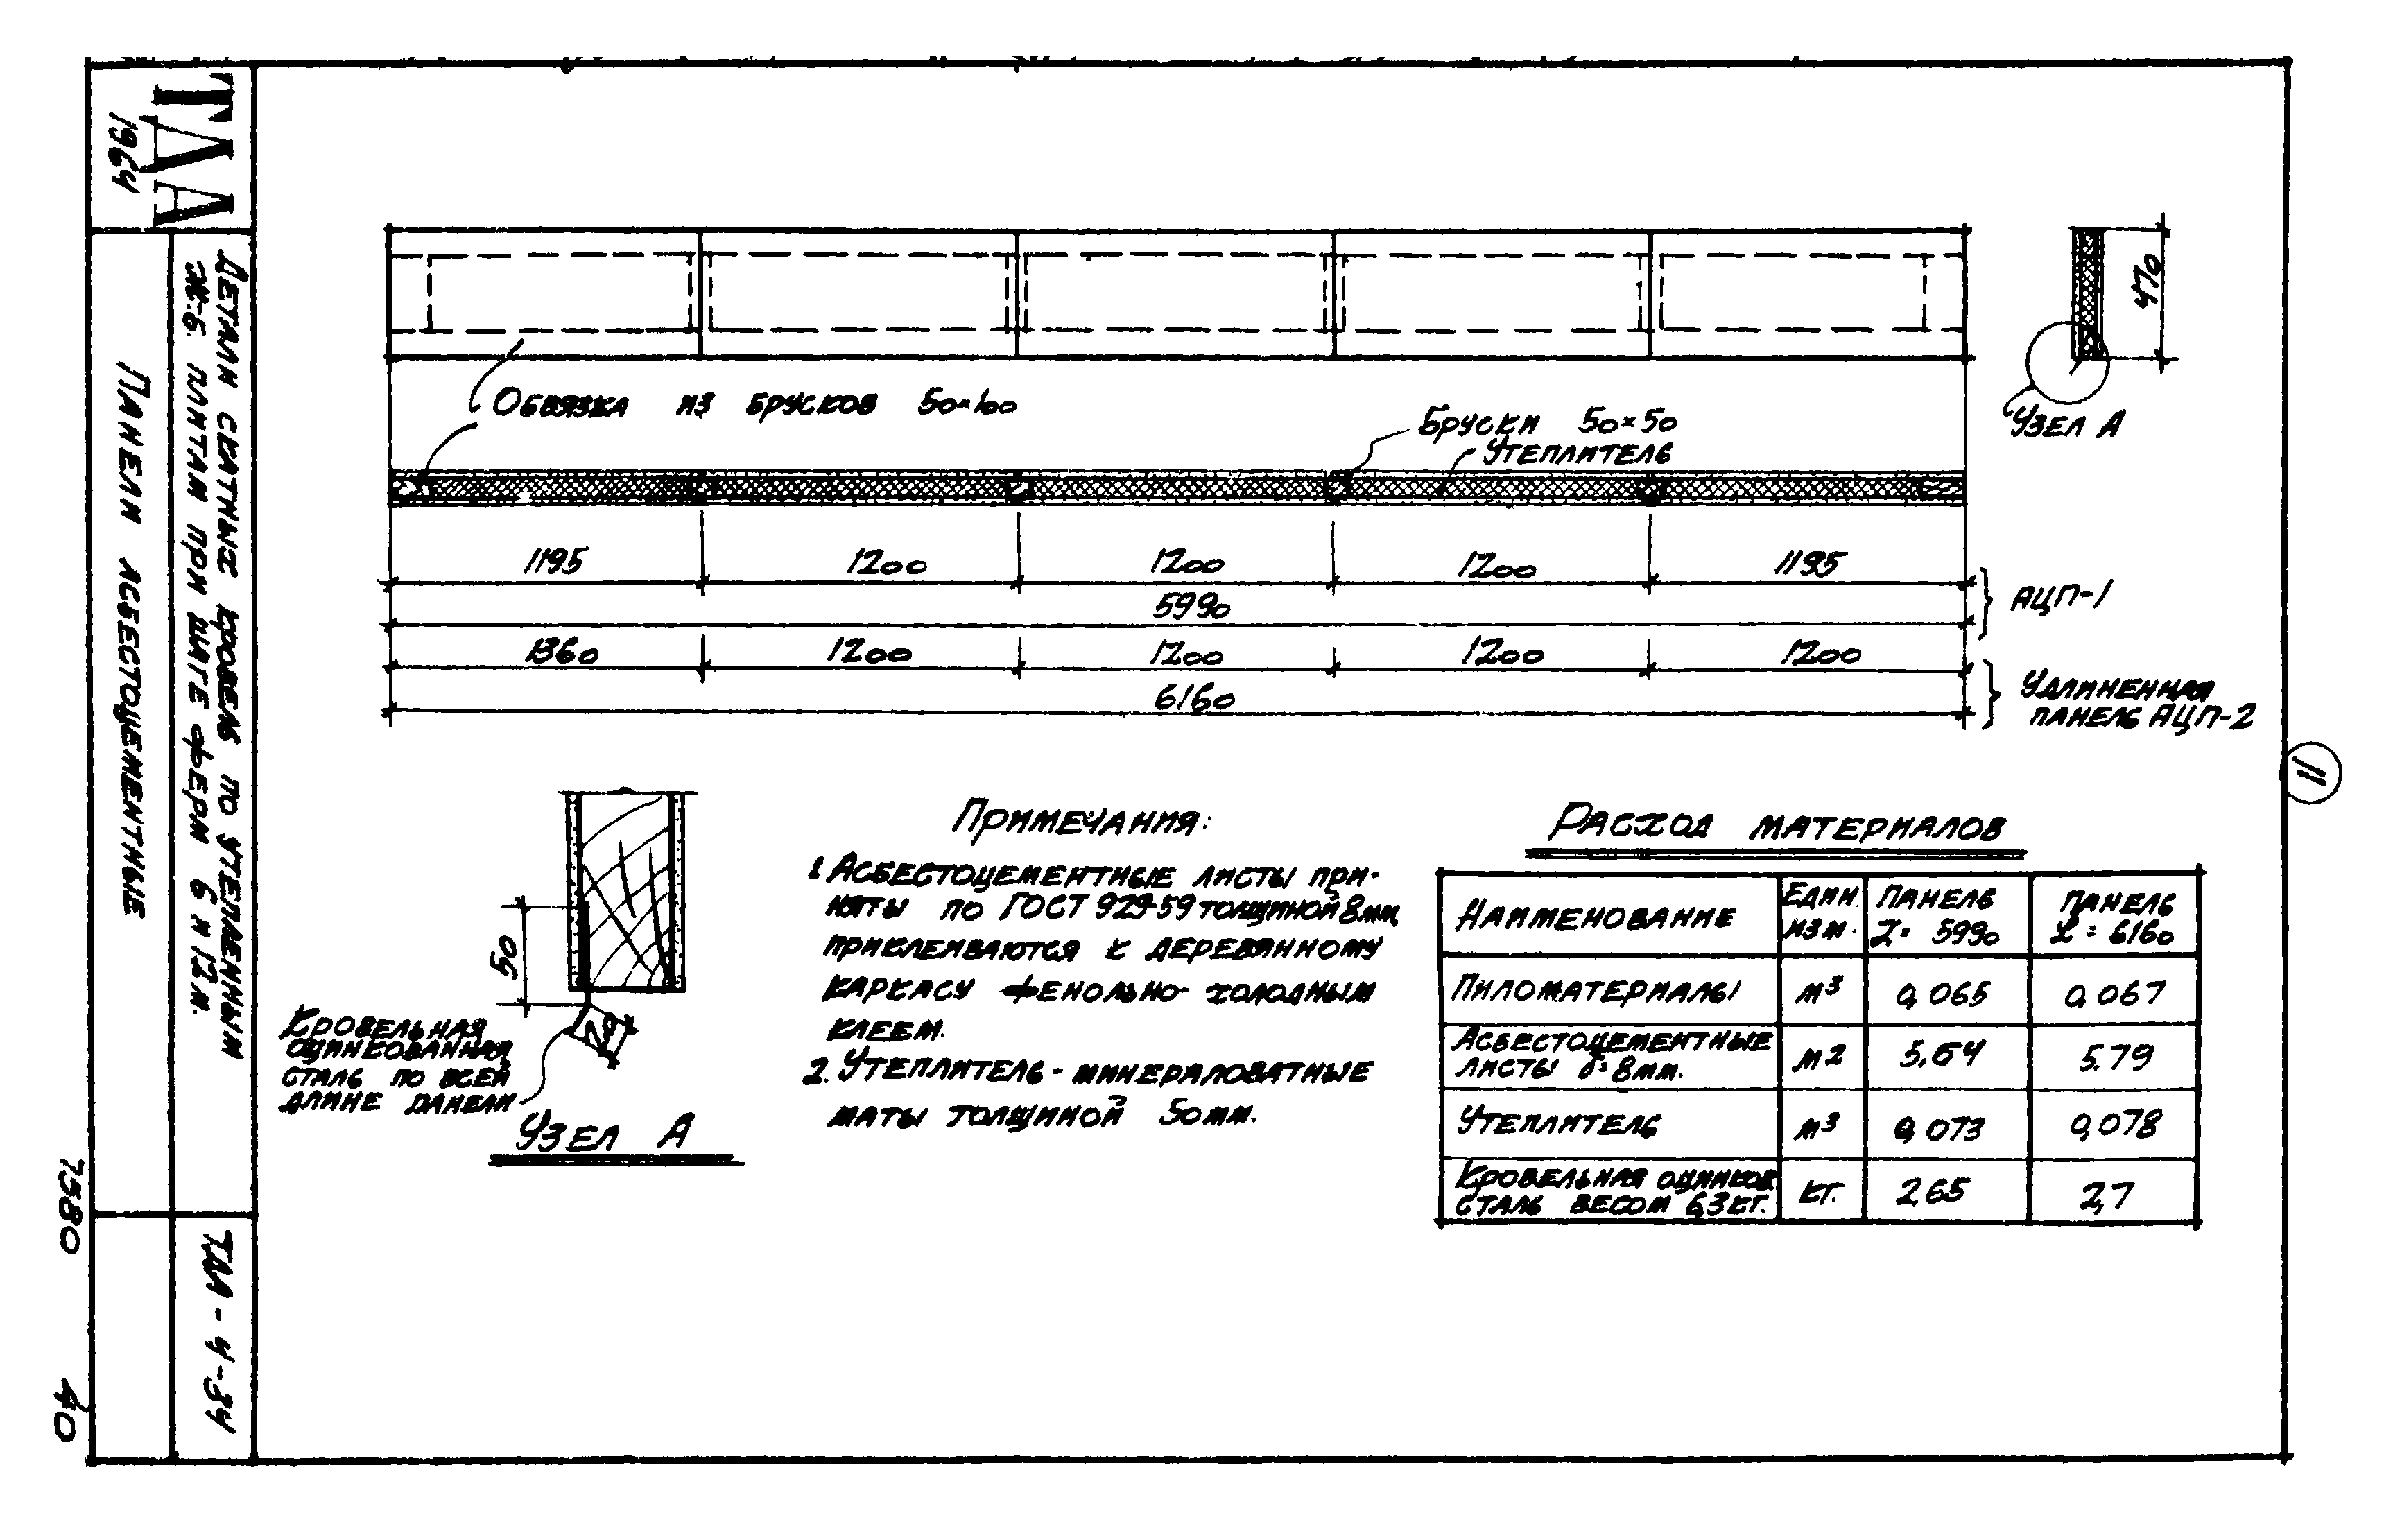 ТДА
1964
Детали скатных кровель по утепленным
ж.-б. плитам при шаге ферм 6 и 12 м.
Панели асбестоцементные
ТДА-4-34
7380
40
11
470
Узел А
Обвязка из брусков 50×100
Бруски 50×50
Утеплитель
1195 1200 1200 1200 1195
5990
АЦП-1
1360 1200 1200 1200 1200
6160
Удлиненная
панель АЦП-2
50
20
Кровельная
оцинкованная
сталь по всей
длине панели
Узел А
Примечания:
1. Асбестоцементные листы при-
няты по ГОСТ 929-59 толщиной 8мм,
приклеиваются к деревянному
каркасу фенольно-холодным
клеем.
2. Утеплитель - минераловатные
маты толщиной 50мм.
Расход материалов
Наименование Един. изм. Панель L= 5990 Панель L= 6160
Пиломатериалы м3 0,065 0,067
Асбестоцементные листы δ=8мм. м2 5.64 5.79
Утеплитель м3 0,073 0,078
Кровельная оцинков. сталь весом 6,3кг. кг. 2,65 2,7